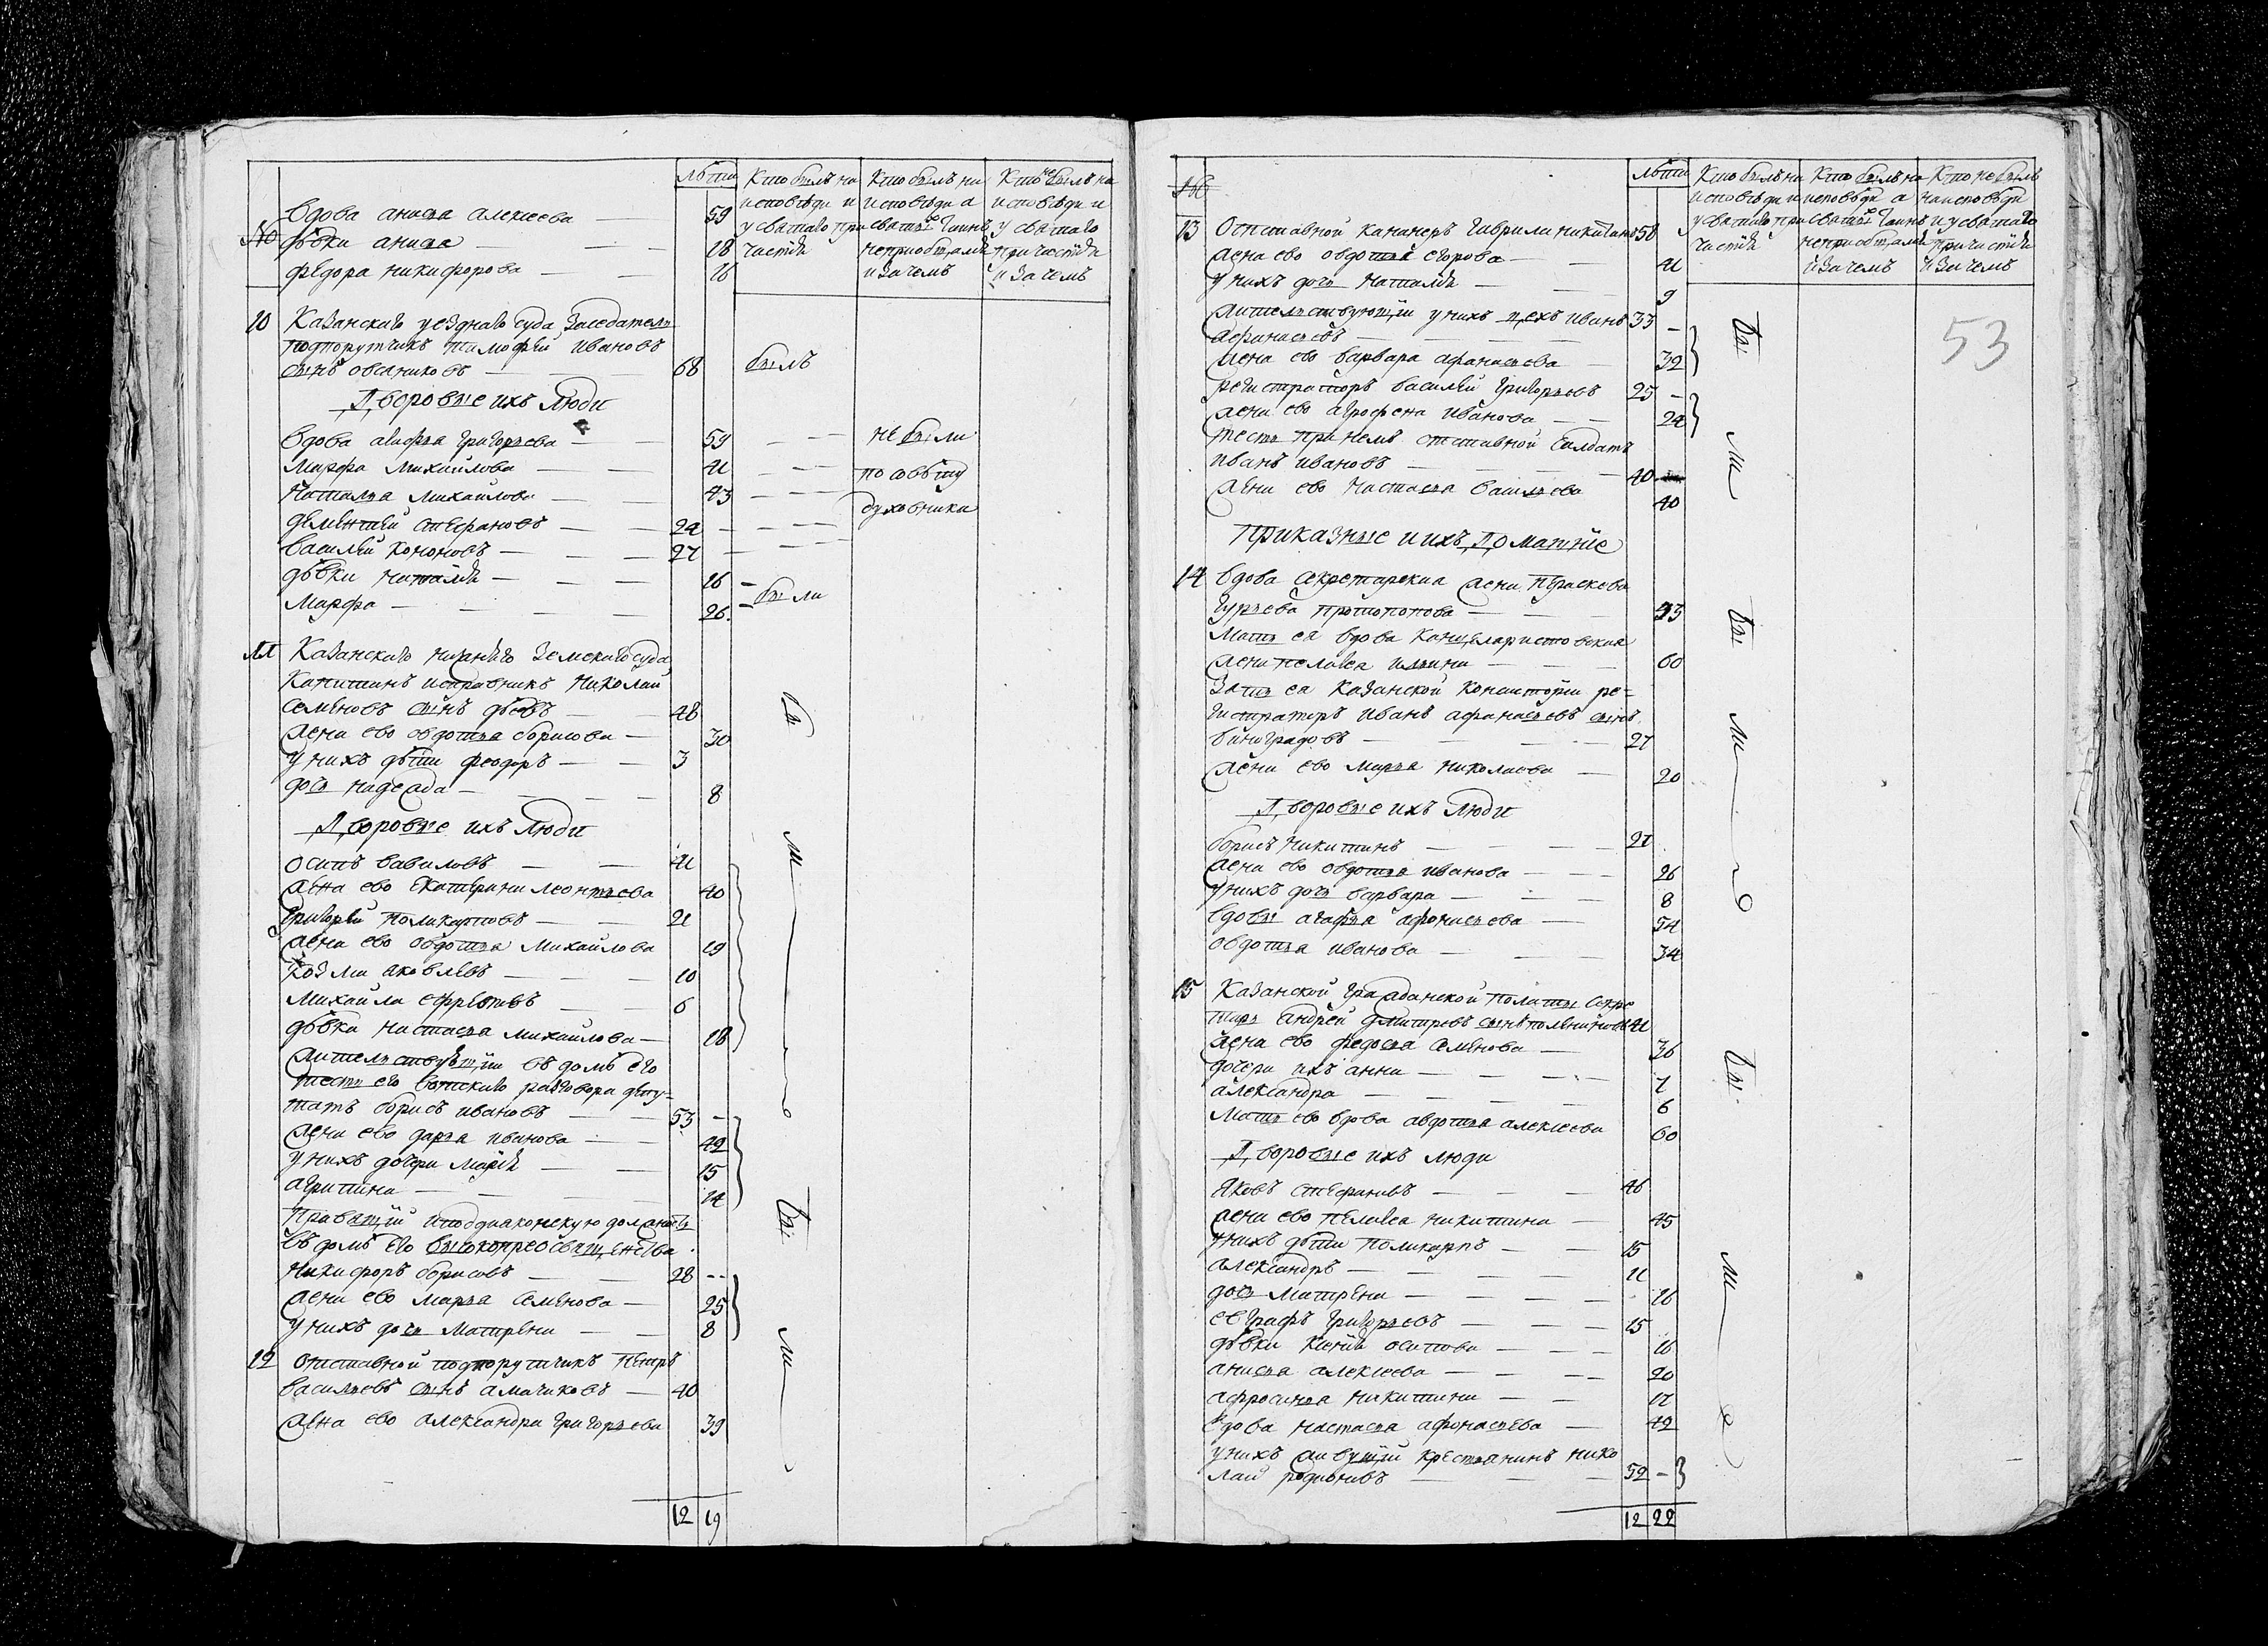 №
Лѣта
Кто былъ на исповѣди и у святаго причастія
Кто былъ на исповѣди а святыхъ таинъ непріобщался и за чемъ
Кто не былъ на исповѣди и у святаго причастія и за чемъ
вдова анисья алексеева — 59
дѣвки анисья — 18
федора никифорова — 16
10 Казанскаго уезднаго суда заседатель
подпорутчикъ тимофѣй ивановъ
сынъ овсяниковъ — 68 былъ
Дворовые ихъ Люди
вдова агафья григорьева — 59 не были
марфа михайлова — 41 по объту
наталья михайлова — 43 духовника
дементей стефановъ — 24
василей кононовъ — 27
дѣвки наталія — 16
марфа — 26 были
11 Казанскаго нижняго земскаго суда
капитанъ исправникъ николай
семеновъ сынъ — 48
жена ево овдотья борисова — 30
у нихъ дѣти феодоръ — 3
дочь надежда — 8
Дворовые ихъ Люди
осипъ вавиловъ — 41
жена ево екатерина леонтьева 40
григорей поликарповъ — 21
жена ево овдотья михайлова 19
козма яковлевъ — 10
михайла ефремовъ 6
дѣвка настасья михайлова — 18
жителствующій въ домѣ его
тесть его вотскаго разговора депу=
татъ борисъ ивановъ — 53
жена ево дарья иванова — 42
у нихъ дочери марія — 15
агрипина — 14
правящій иподиаконскую должность
въ домѣ его высокопреосвященства
никифоръ борисовъ — 28
жена ево марья семенова — 25
у нихъ дочь матрена — 8
бы ли
12 отставной подпорутчикъ петръ
васильевъ сынъ амачиковъ — 40
жена ево александра григорьева 39
бы ли
12 19
№
Лѣта
Кто былъ на исповѣди и у святаго причастія
Кто былъ на исповѣди а святыхъ таинъ непріобщался и за чемъ
Кто не былъ на исповѣди и у святаго причастія и за чемъ
53
13 Отставной кананеръ гаврила никитинъ 58
жена ево овдотья егорова — 41
у нихъ дочь наталія — 9
жителствующіи у нихъ цехъ иванъ 33
афанасьевъ
жена ево варвара афанасьева — 32
регистраторъ василей григорьевъ 25
жена ево агрофена иванова — 24
тесть при немъ отставной солдатъ
иванъ ивановъ — 40
жена ево настасья васильева 40
бы ли
приказные и ихъ домашніе
14 вдова секретарская жена праскева
гурьева протопопова — 43
мать ея вдова канцеляристовская
жена пелагея ильина — 60
зять ея казанской консисторіи ре=
гистраторъ иванъ афанасьевъ сынъ
виноградовъ — 27
жена ево марья николаева — 20
Дворовые ихъ Люди
борисъ никитинъ — 27
жена ево овдотья иванова — 26
у нихъ дочь варвара — 8
вдовы агафья афонасьева — 54
овдотья иванова — 34
бы ли
15 Казанской гражданской полаты секре
тарь андрей дмитревъ сынъ 41
жена ево федосья семенова — 36
дочери ихъ анна — 7
александра — 6
мать ево вдова авдотья алексеева 60
Дворовые ихъ люди
яковъ стефановъ — 46
жена ево пелагея никитина — 45
у нихъ дѣти поликарпъ — 15
александръ — 11
дочь матрена — 16
евграфъ григорьевъ — 15
дѣвки ксенія осипова — 16
анисья алексеева — 20
афросинья никитина — 17
вдова настасья афонасьева — 42
у нихъ живущій крестьянинъ нико
лай родионовъ — 52
бы ли
12 22